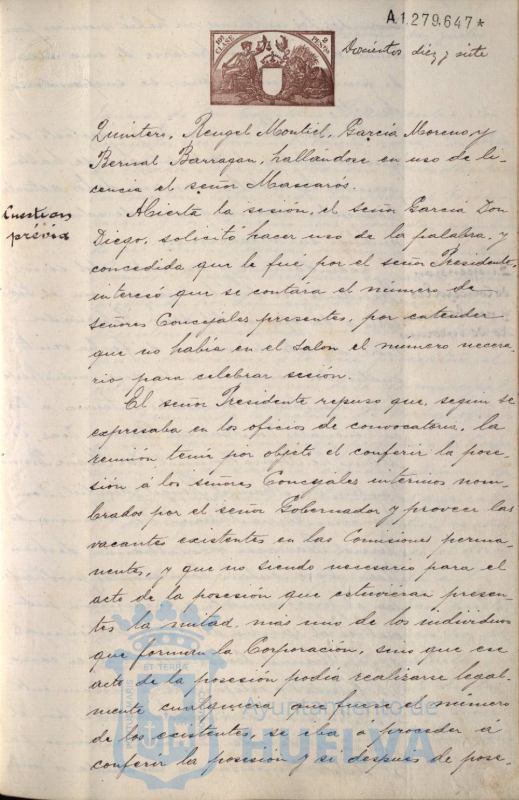 A.1.279.647*
10ª CLASE 2 PESTAS
Doscientos diez y siete
Quintero, Rengel Montiel, García Moreno y
Bernal Barragan, hallándose en uso de li-
cencia el señor Mascarós.
Cuestion
prévia
Abierta la sesión, el señor García Don
Diego, solicitó hacer uso de la palabra, y
concedida que le fué por el señor Presidente,
interesó que se contára el número de
señores Concejales presentes, por entender
que no había en el salon el número necesa-
rio para celebrar sesión.
El señor Presidente repuso que, segun se
expresaba en los oficios de convocatoria, la
reunión tenia por objeto el conferir la pose-
sión á los señores Concejales interinos nom-
brados por el señor Gobernador y proveer las
vacantes existentes en las Comisiones perma-
nentes, y que no siendo necesario para el
acto de la posesión que estuvieran presen-
tes la mitad más uno de los individuos
que forman la Corporación, sino que ese
acto de la posesión podía realizarse legal-
mente cualquiera que fuese el número
de los existentes, se iba á proceder á
conferir la posesión y si después de pose-
PORTUS MARIS ET TERRÆ
Ayuntamiento de
HUELVA